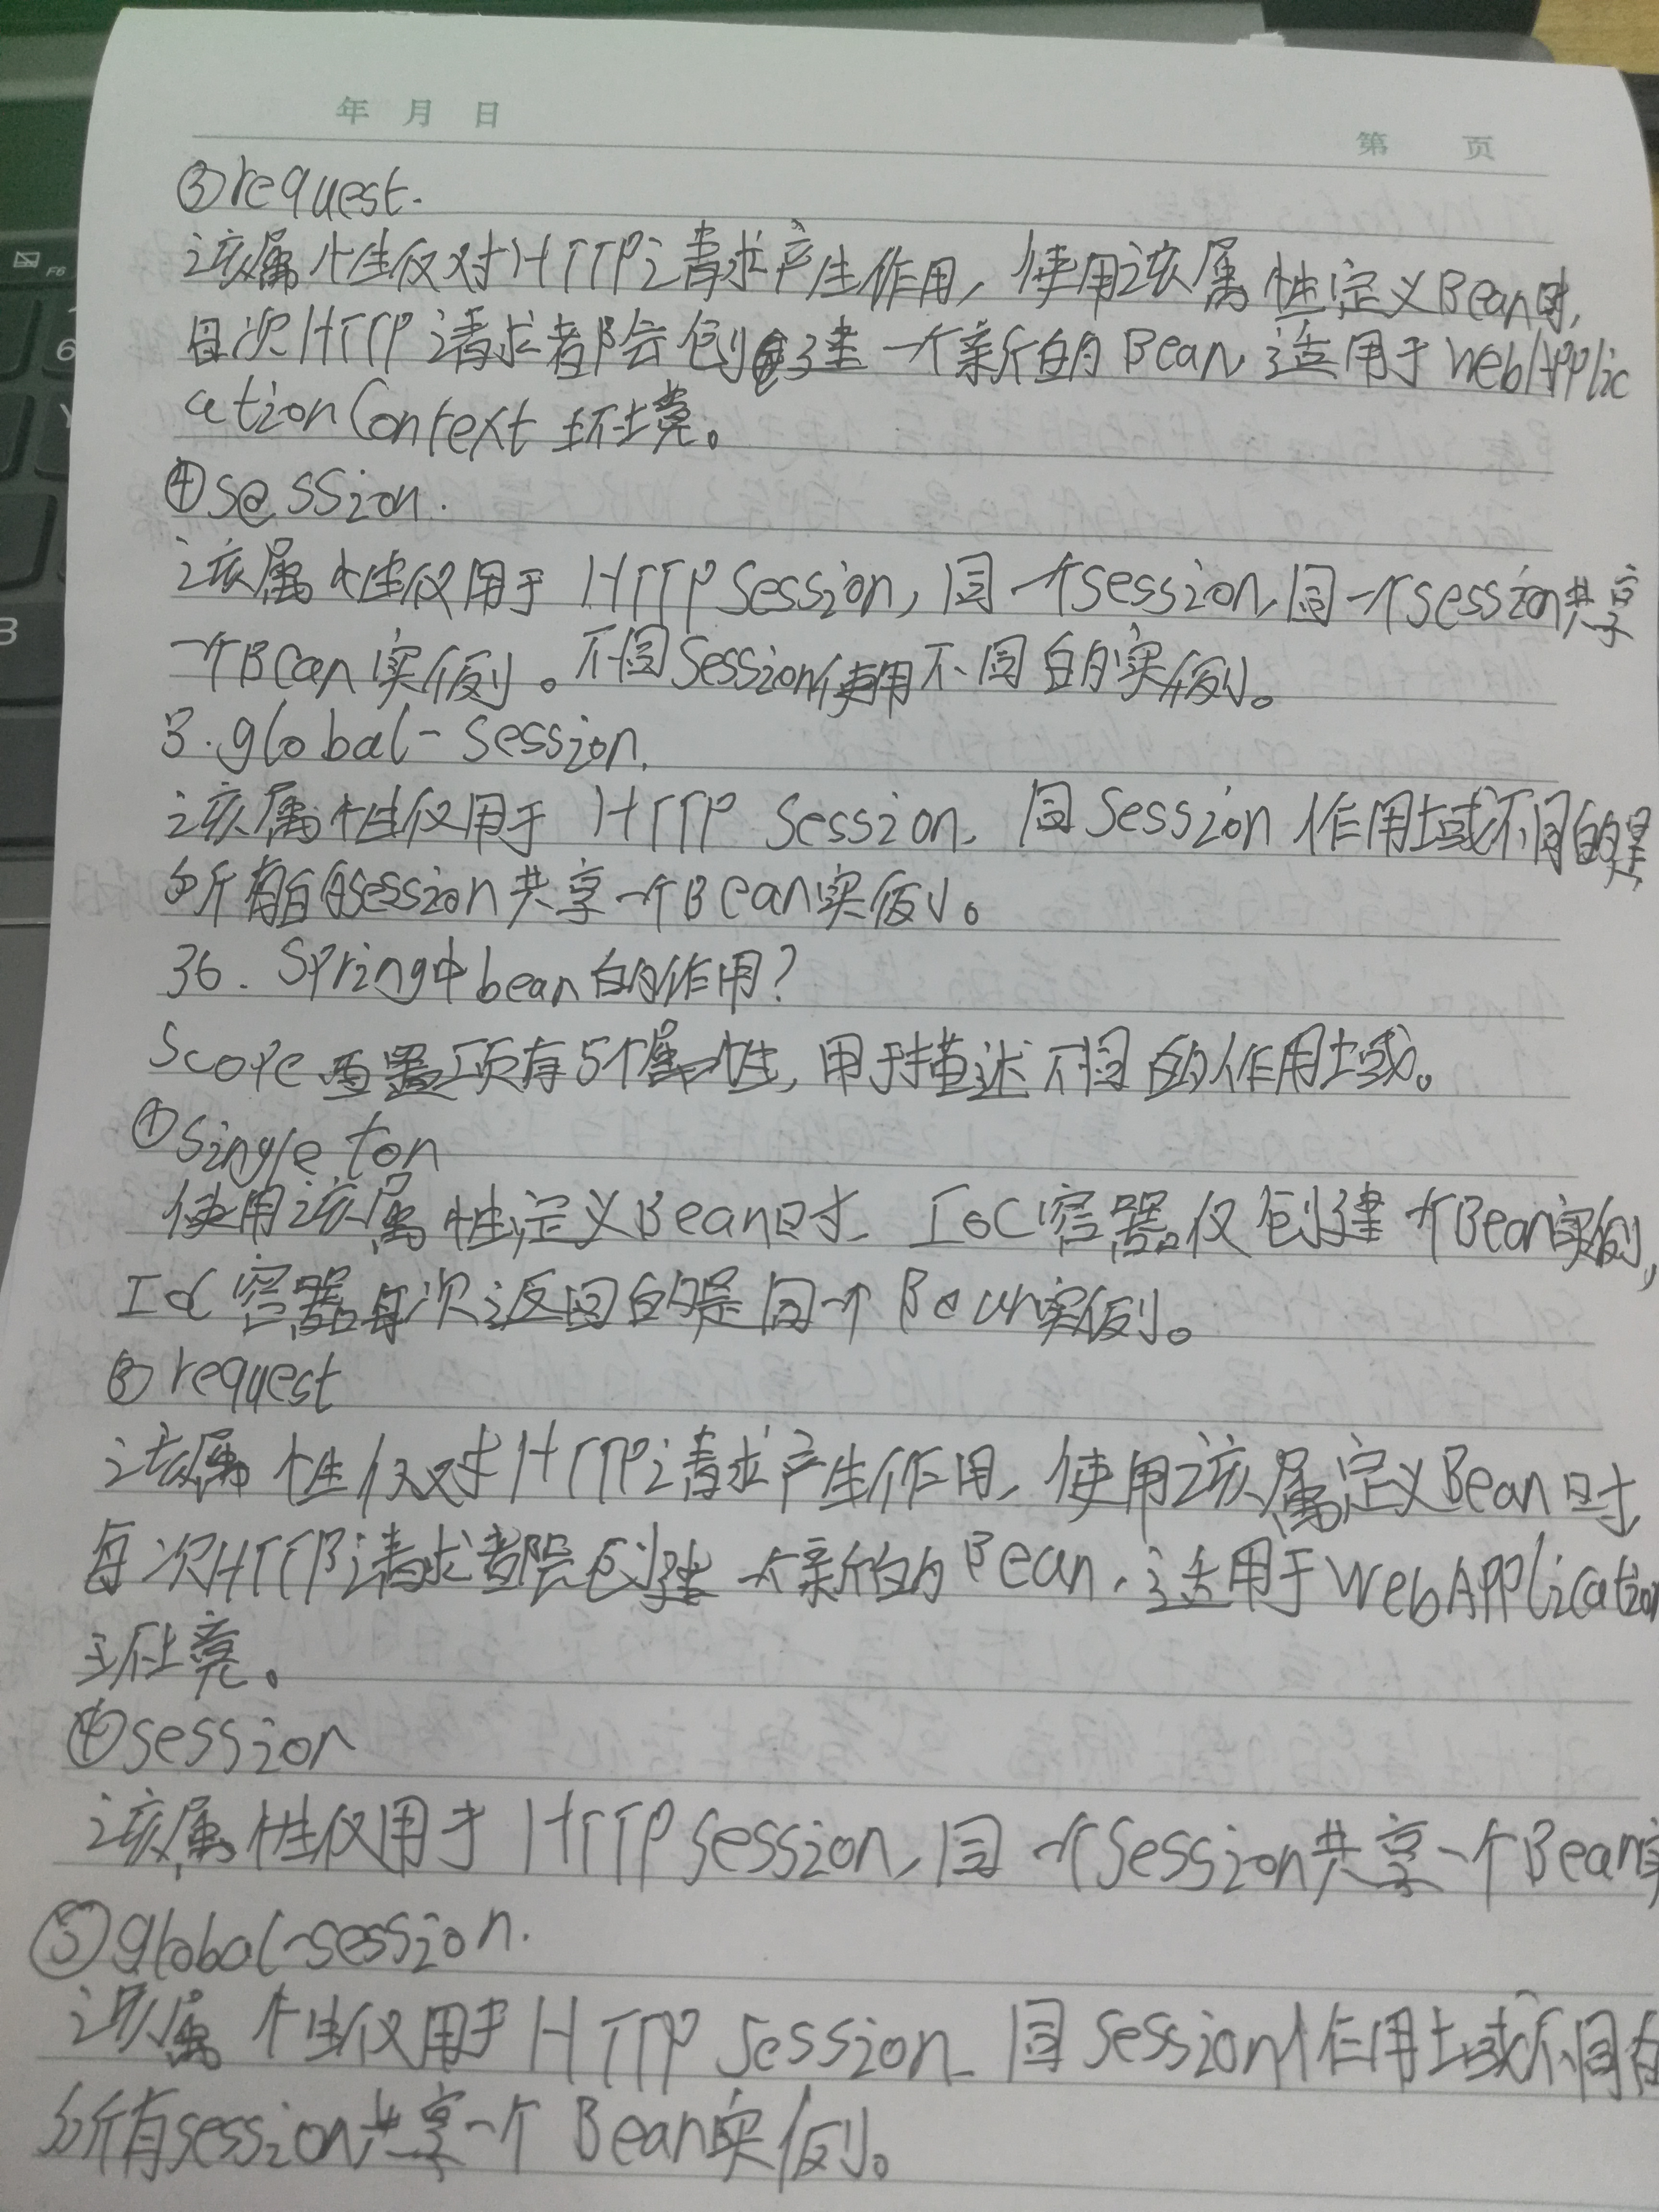 年 月 日
第 页
③request.
该属性仅对HTTP请求产生作用,使用该属性定义Bean时,
每次HTTP请求都会创建一个新的Bean,适用于WebApplic
ationContext环境。
④session.
该属性仅用于HTTP Session,同一个session,同一个session共享
一个Bean实例。不同Session使用不同的实例。
3.global-session.
该属性仅用于HTTP Session,同Session作用域不同的是
所有的session共享一个Bean实例。
36.Spring中bean的作用?
Scope配置项有5个属性,用于描述不同的作用域。
①singleton
使用该属性定义Bean时,IoC容器仅创建一个Bean实例,
IoC容器每次返回的是同一个Bean实例。
③request
该属性仅对HTTP请求产生作用,使用该属定义Bean时
每次HTTP请求都会创建一个新的Bean,适用于WebApplication
环境。
④session
该属性仅用于HTTP Session,同一个Session共享一个Bean实
⑤global-session.
该属性仅用于HTTP Session,同Session作用域不同的
所有session共享一个Bean实例。
F6
6
Y
B